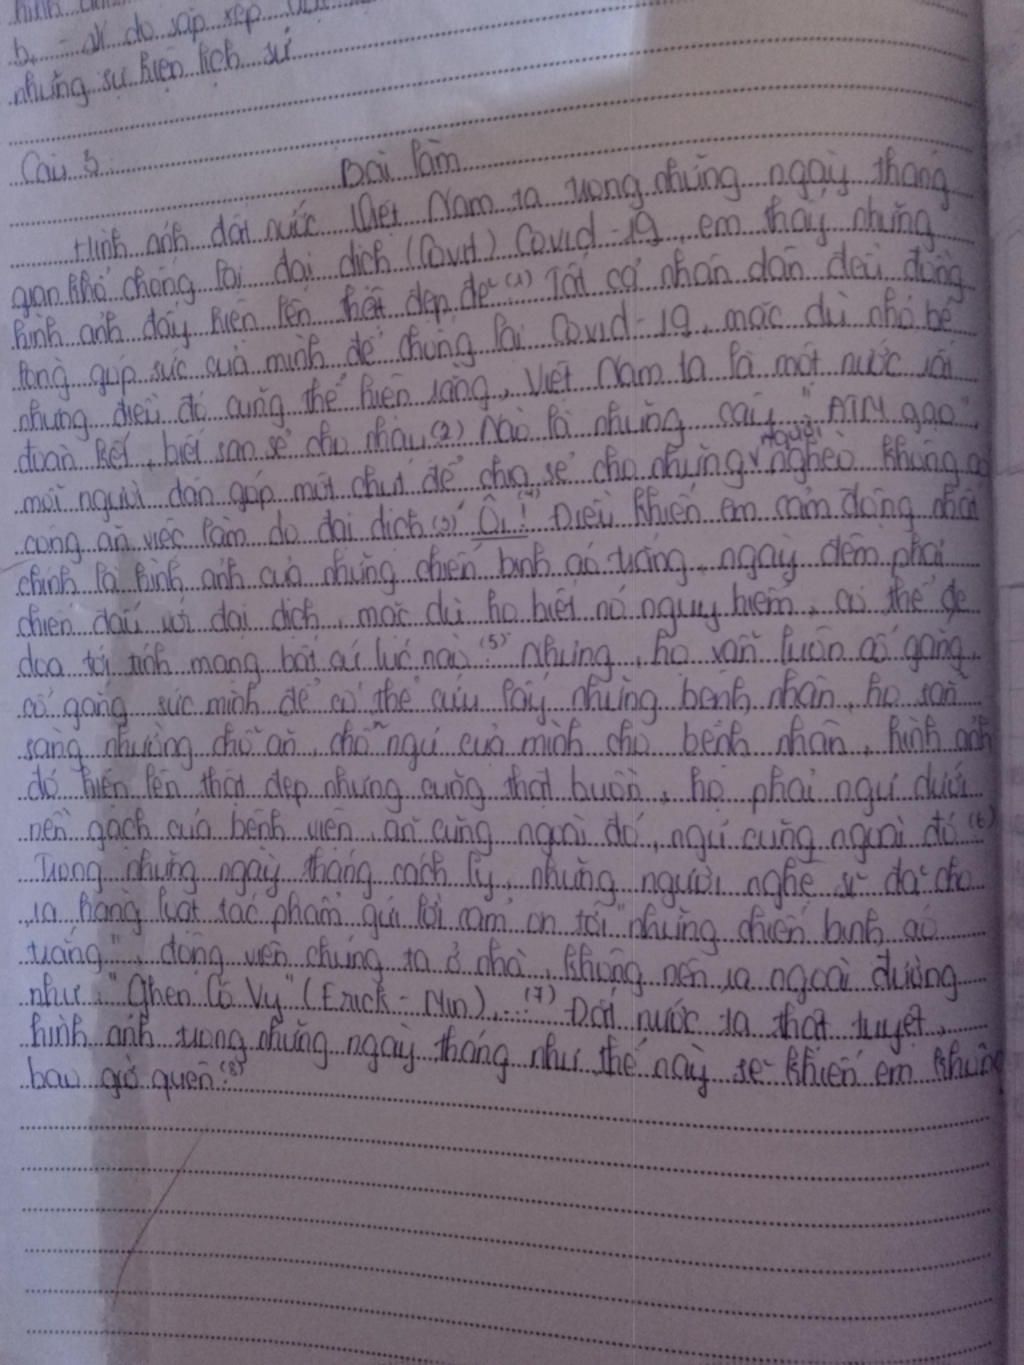 b, - Vì do sắp xếp
những sự kiện lịch sử
Câu 3
Bài làm
Hình ảnh đất nước Việt Nam ta trong những ngày tháng
gian khổ chống lại đại dịch (Covid) Covid-19, em thấy những
hình ảnh đấy hiện lên thật đẹp đẽ (1) Tất cả nhân dân đều đồng
lòng góp sức của mình để chống lại Covid-19, mặc dù nhỏ bé
nhưng điều đó cũng thể hiện rằng, Việt Nam ta là một nước rất
đoàn kết, biết san sẻ cho nhau (2) Nào là những cây "ATM gạo",
mỗi người dân góp một chút để chia sẻ cho những người nghèo không có
công ăn việc làm do đại dịch (3) Ôi! (4) Điều khiến em cảm động nhất
chính là hình ảnh của những chiến binh áo trắng, ngày đêm phải
chiến đấu với đại dịch, mặc dù họ biết nó nguy hiểm, có thể đe
dọa tới tính mạng bất cứ lúc nào (5) Nhưng, họ vẫn luôn cố gắng,
cố gắng sức mình để có thể cứu lấy những bệnh nhân, họ sẵn
sàng nhường chỗ ăn, chỗ ngủ của mình cho bệnh nhân, hình ảnh
đó hiện lên thật đẹp nhưng cũng thật buồn, họ phải ngủ dưới
nền gạch của bệnh viện, ăn cũng ngoài đó, ngủ cũng ngoài đó (6)
Trong những ngày tháng cách ly, những người nghệ sĩ đã cho
ra hàng loạt tác phẩm gửi lời cảm ơn tới "những chiến binh áo
trắng", động viên chúng ta ở nhà, không nên ra ngoài đường
như: "Ghen Cô Vy" (Erick - Min),... (7) Đất nước ta thật tuyệt,
hình ảnh trong những ngày tháng như thế này sẽ khiến em không
bao giờ quên. (8)